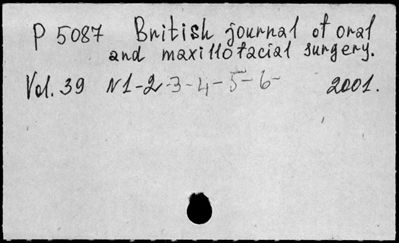 P 5087 British journal of oral
and maxillofacial surgery.
Vol. 39 N1-2-3-4-5-6- 2001.